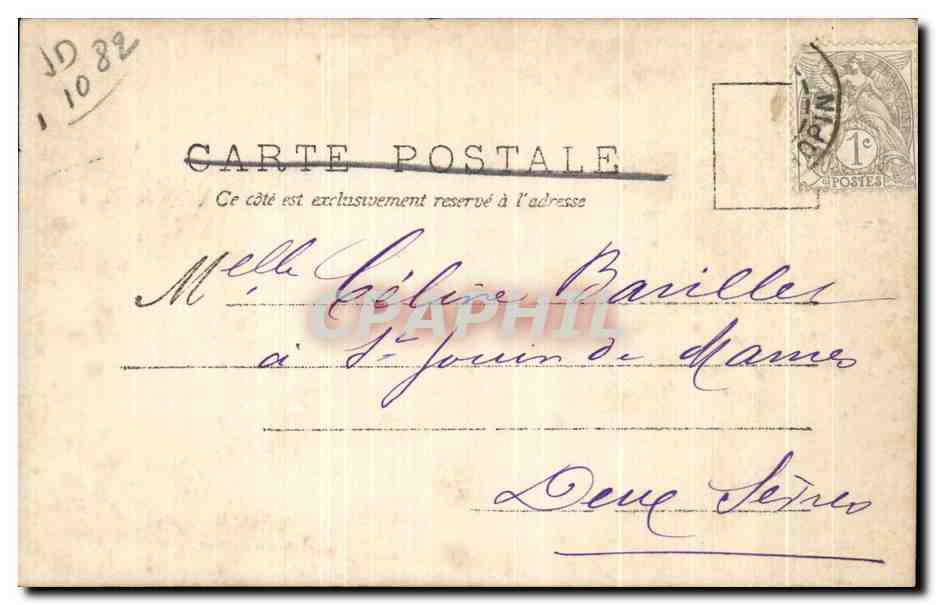 JD
10 82
CARTE POSTALE
Ce côté est exclusivement reservé à l'adresse
1c
POSTES
OPIN
Melle Céline Barilles
CPAPHIL
à St Jouin de Marnes
Deux Sèvres